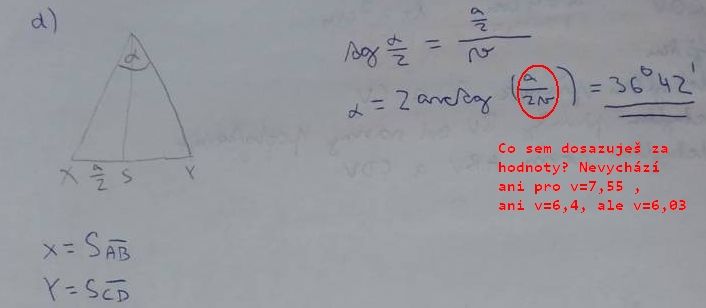 d)
α
X a/2 S Y
X = S_AB̅
Y = S_CD̅
tg α/2 = (a/2)/v
α = 2 arctg (a/2v) = 36° 42'
Co sem dosazuješ za
hodnoty? Nevychází
ani pro v=7,55 ,
ani v=6,4, ale v=6,03